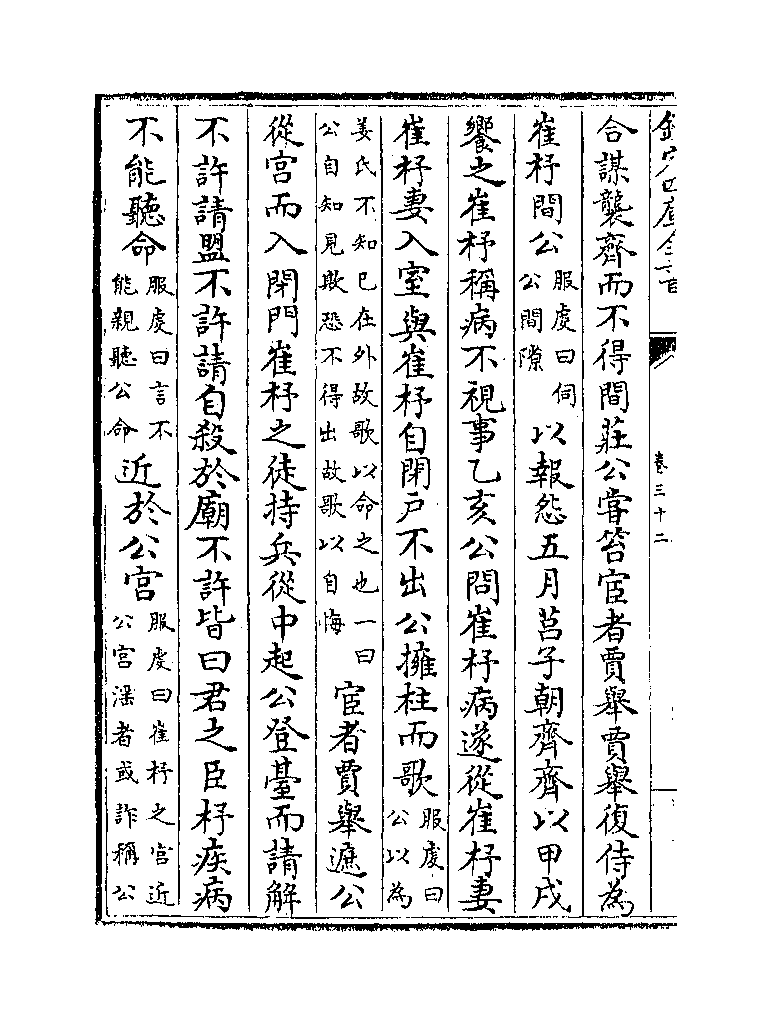 欽定四庫全書
卷三十二
合謀襲齊而不得間莊公嘗笞宦者賈舉賈舉復侍為
崔杼間公服䖍曰伺公間隙以報怨五月莒子朝齊齊以甲戌
饗之崔杼稱病不視事乙亥公問崔杼病遂從崔杼妻
崔杼妻入室與崔杼自閉户不出公擁柱而歌服䖍曰公以為
姜氏不知已在外故歌以命之也一曰公自知見欺恐不得出故歌以自悔宦者賈舉遮公
從宫而入閉門崔杼之徒持兵從中起公登臺而請解
不許請盟不許請自殺於廟不許皆曰君之臣杼疾病
不能聽命服䖍曰言不能親聽公命近於公宫服䖍曰崔杼之宫近公宫滛者或詐稱公